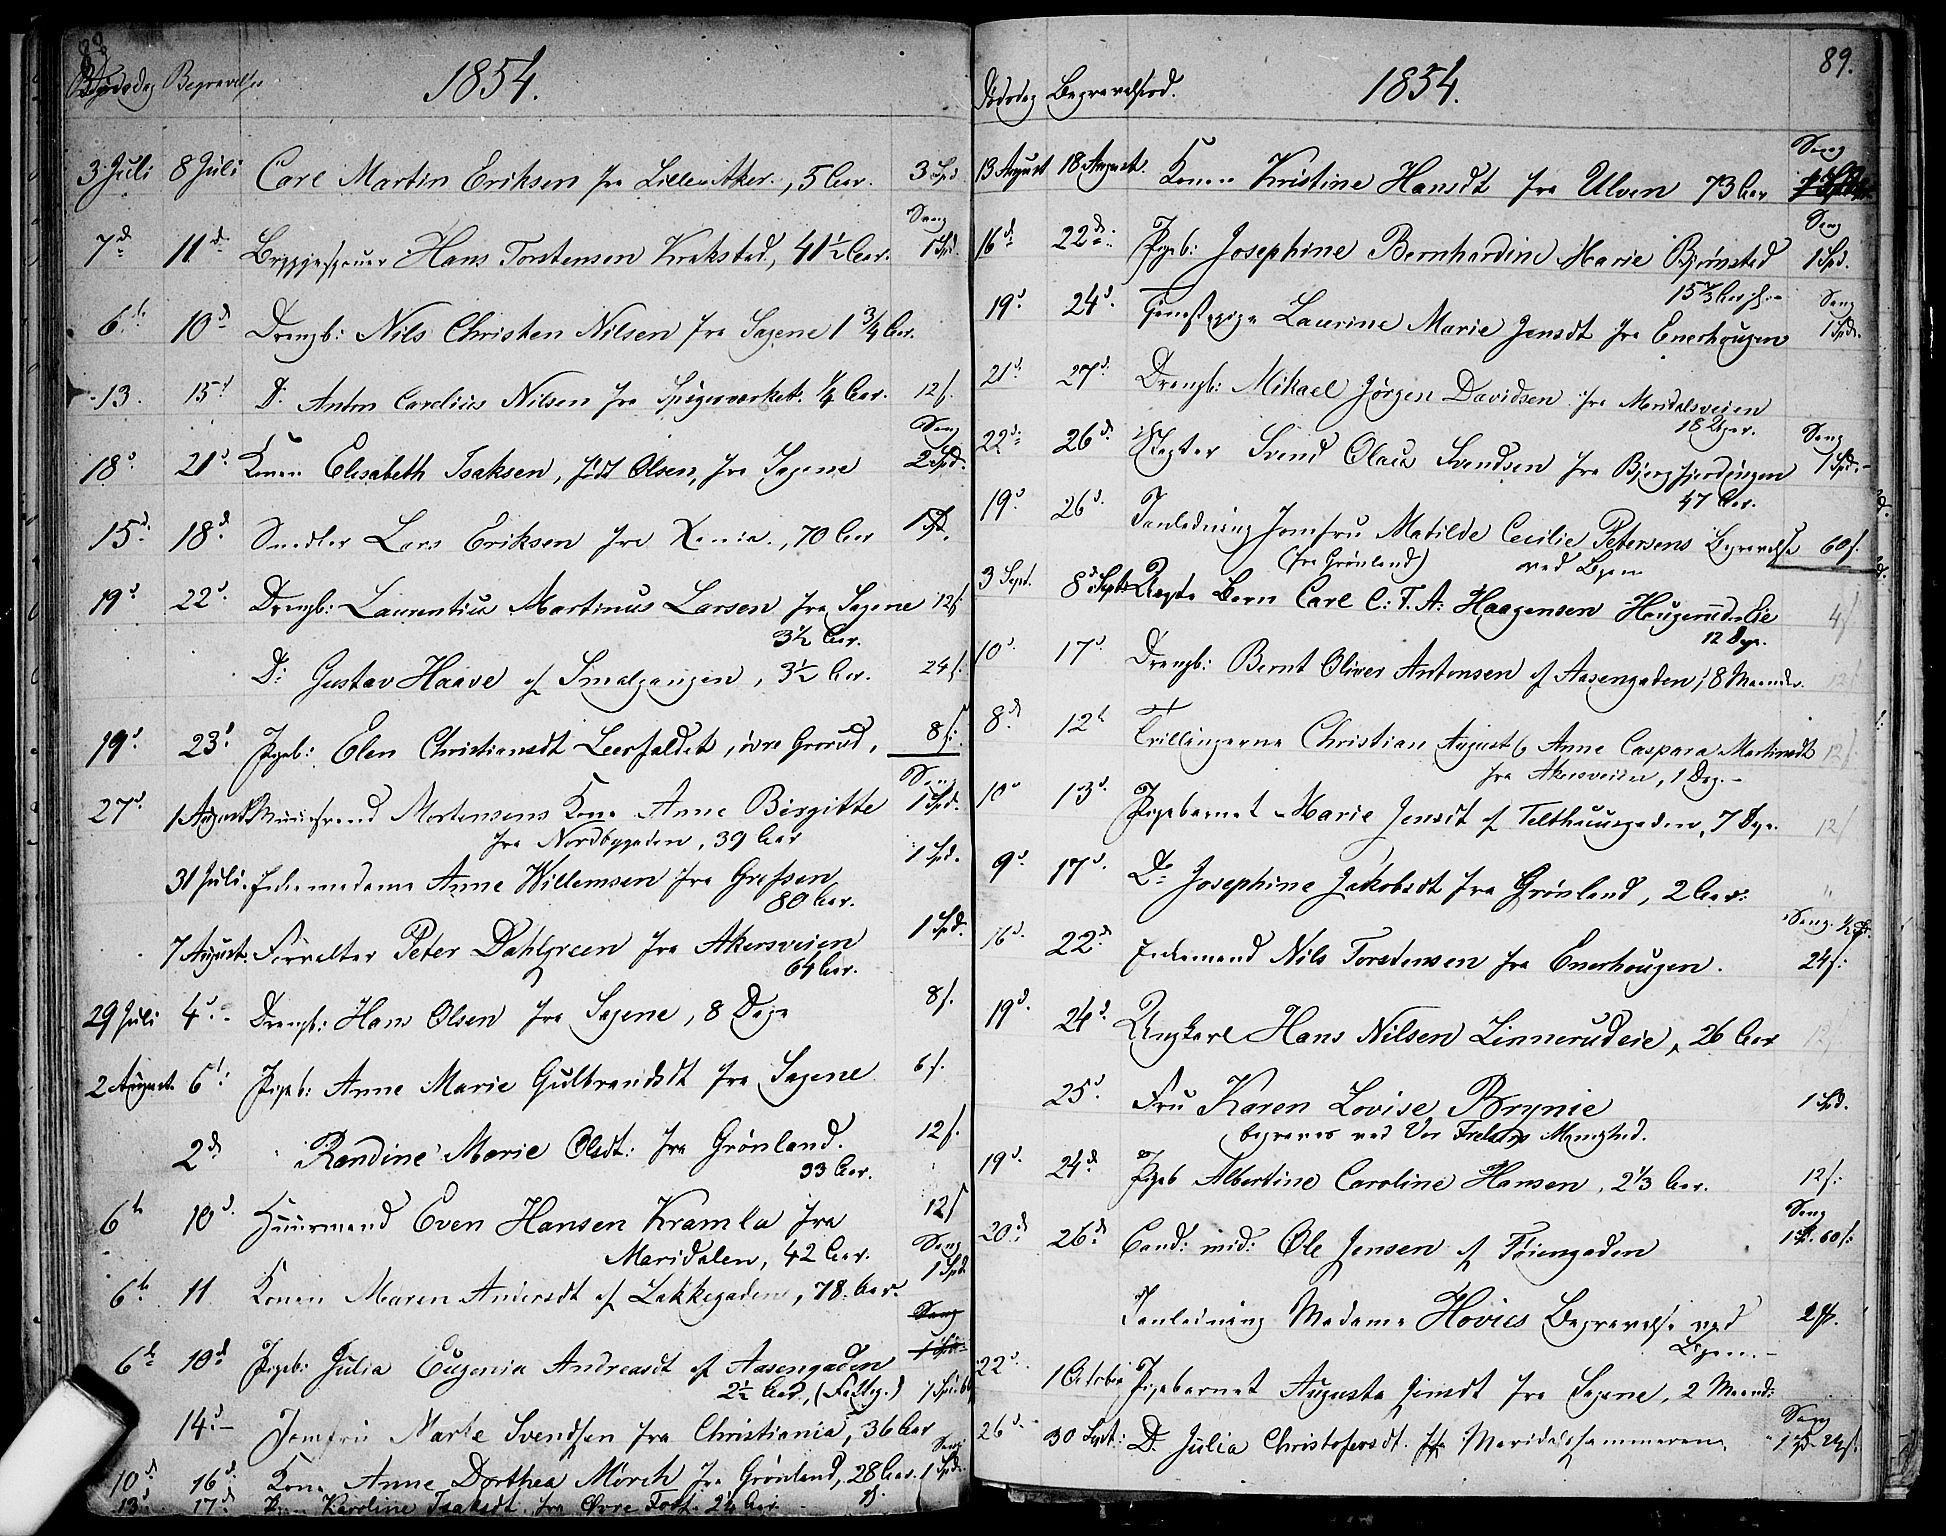 88
Dødsdag Begravelse 1854.
3 Juli 8 Juli Carl Martin Eriksen fra Lille Aker, 5 Aar. 3 Spd
7d 11d Hans Torstensen Krakstad, 41½ Aar. Sang 1 Spd.
6te 10d Drengb: Nils Christen Nilsen fra Sagene 1¾ Aar.
13. 15d D: Anton Carelius Nilsen fra Spigerverket ¼ Aar. 12ſ.
18d 21d Konen Elisabeth Isaksen, født Olsen, fra Sagene Sang 2 Spd.
15d. 18d Lars Eriksen fra Xania, 70 Aar 1 Spd.
19d 22d. Drengb: Laurentius Martinus Larsen fra Sagene 12ſ
3½ Aar.
D: Gustav Haave af Smalgangen, 3½ Aar. 24ſ.
19d 23d Pigeb: Elen Christiansdt Leerfaldet, övre Grorud. 8ſ.
27d 1 August Mortensens Kone Anne Birgitte Sang 1 Spd.
fra Nordbygaden, 39 Aar
31 Juli. Anne Willemsen fra Grefsen 1 Spd.
80 Aar.
7 August. Forvalter Peter Dahlgreen fra Akersveien 1 Spd.
64 Aar.
29 Juli 4d Drengb: Hans Olsen fra Sagene, 8 Dage 8ſ.
2 August 6d: Pigeb: Anne Marie Gulbrandsdt fra Sagene 6ſ.
2d Randine Marie Olsdt: fra Grönland. 12ſ.
33 Aar.
6te 10d. Huusmand Even Hansen Kramla fra 12ſ
Maridalen, 42 Aar.
6te 11 Konen Maren Andersdt af Lakkegaden, 78 Aar. Sang 1 Spd
6te 10d Pigeb: Julia Eugenia Andreasdt af Aasengaden Sang 1 Spd
2½ Aar, (Fattig.)
14d Jomfru Marte Svendsen fra Christiania, 36 Aar
10d 16d. Kone Anne Dorthea Mörch fra Grönland, 28 Aar. Sang 1 Spd.
13d 17d Karoline Isaksdt. fra Övre Foss 2¼ Aar
89.
Dödsdag Begravelsesd. 1854.
13 August 18 August. Konen Kristine Hansdt fra Ulven 73 Aar Sang
16d 22d: Pigeb: Josephine Bernhardine Marie Bjørnstad Sang 1 Spd.
19d. 24d. Tjenestepige Laurine Marie Jensdt fra Enerhougen Sang 1 Spd.
21d 27d. Drengb: Mikael Jörgen Davidsen fra Maridalsveien
18 Uger.
22d: 26d. Svend Olaus Svendsen fra Bjergfjerdingen Sang 1 Spd.
47 Aar.
19d 26d. I anledning Jomfru Matilde Cecilie Petersens Begravelse 60ſ.
(fra Grönland) ved Byen
3 Sept. 8d Septr Uægte Barn Carl C: T. A: Haagensen Haugerudeie 4ſ
12 Dage.
10d. 17d Drengb: Bernt Oliver Antonsen af Aasengaden, 8 Maaneder. 12ſ
8d 12d Trillingerne Christian August & Anne Caspara Martinsdt 12ſ
fra Akersveien, 1 Dag.
10d 13d. Pigebarnet Marie Jensdt af Telthuusgaden, 7 Dage. 12ſ
9d. 17d. Do Josephine Jakobsdt fra Grönland, 2 Aar: "
16d. 22d Indemand Nils Torstensen fra Enerhougen. Sang ½ Spd. 24ſ:
19d. 24d. Ungkarl Hans Nilsen Linnerudeie, 26 Aar 12ſ
25d. Fru Karen Lovise Brynie 1 Spd.
begraves ved Vor Frelsers Menighed.
19d. 24d Pigeb Albertine Caroline Hansen, 2⅓ Aar. 12ſ:
20d: 26d Cand: med: Ole Jensen af Føiengaden Sang 1 Spd. 60ſ:
I anledning Madame Høvies Begravelse ved
Byen.
22d. 1 October Pigebarnet Augusta Jensdt fra Sagene, 2 Maand:
26d. 30 Sept: D. Julia Christofersdt. fra Maridalshammeren. Sang 1 Spd. 24ſ.